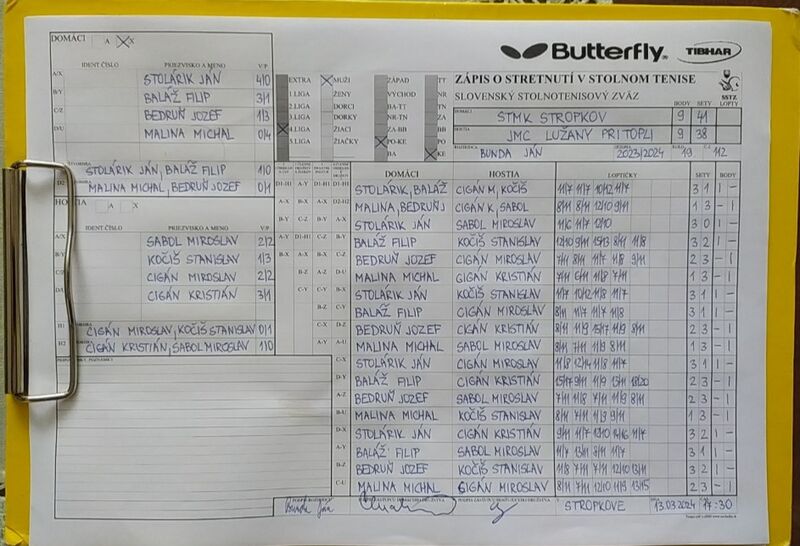 DOMÁCI A X
Butterfly
TIBHAR
IDENT ČÍSLO PRIEZVISKO A MENO V/P
A/X STOLÁRIK JÁN 4/0
B/Y BALÁŽ FILIP 3/1
C/Z BEDRUŇ JOZEF 1/3
D/U MALINA MICHAL 0/4
STOLÁRIK JÁN, BALÁŽ FILIP 1/0
D2 MALINA MICHAL, BEDRUŇ JOZEF 0/1
HOSTIA A X
IDENT ČÍSLO PRIEZVISKO A MENO V/P
A/X SABOL MIROSLAV 2/2
B/Y KOČIŠ STANISLAV 1/3
C/Z CIGÁN MIROSLAV 2/2
D/U CIGÁN KRISTIÁN 3/1
H1 CIGÁN MIROSLAV, KOČIŠ STANISLAV 0/1
H2 CIGÁN KRISTIÁN, SABOL MIROSLAV 1/0
EXTRA MUŽI ZÁPAD TT
1.LIGA ŽENY VÝCHOD NR
2.LIGA DORCI BA-TT TN
3.LIGA DORKY NR-TN
4.LIGA ŽIACI ZA-BB
5.LIGA ŽIAČKY PO-KE
BA KE
ZÁPIS O STRETNUTÍ V STOLNOM TENISE
SLOVENSKÝ STOLNOTENISOVÝ ZVÄZ
SSTZ
BODY SETY LOPTY
DOMÁCI STMK STROPKOV 9 41
HOSTIA JMC LUŽANY PRI TOPLI 9 38
BUNDA JÁN 2023/2024 19 112
DOMÁCI HOSTIA LOPTIČKY SETY BODY
STOLÁRIK, BALÁŽ CIGÁN M, KOČIŠ 11/7 11/7 10/12 11/7 3 1 1 -
MALINA, BEDRUŇ J CIGÁN K, SABOL 8/11 8/11 12/10 9/11 1 3 - 1
STOLÁRIK JÁN SABOL MIROSLAV 11/6 11/7 12/10 3 0 1 -
BALÁŽ FILIP KOČIŠ STANISLAV 12/10 9/11 15/13 8/11 11/8 3 2 1 -
BEDRUŇ JOZEF CIGÁN MIROSLAV 7/11 8/11 11/7 11/8 9/11 2 3 - 1
MALINA MICHAL CIGÁN KRISTIÁN 7/11 6/11 11/8 7/11 1 3 - 1
STOLÁRIK JÁN KOČIŠ STANISLAV 11/7 10/12 11/8 11/7 3 1 1 -
BALÁŽ FILIP CIGÁN MIROSLAV 8/11 11/7 11/8 11/7 3 1 1 -
BEDRUŇ JOZEF CIGÁN KRISTIÁN 8/11 11/9 15/17 11/9 8/11 2 3 - 1
MALINA MICHAL SABOL MIROSLAV 8/11 7/11 11/9 8/11 1 3 - 1
STOLÁRIK JÁN CIGÁN MIROSLAV 11/8 12/14 11/8 11/7 3 1 1 -
BALÁŽ FILIP CIGÁN KRISTIÁN 15/17 9/11 11/9 13/11 18/20 2 3 - 1
BEDRUŇ JOZEF SABOL MIROSLAV 8/11 11/8 7/11 11/9 8/11 2 3 - 1
MALINA MICHAL KOČIŠ STANISLAV 8/11 7/11 11/9 9/11 1 3 - 1
STOLÁRIK JÁN CIGÁN KRISTIÁN 9/11 11/7 12/10 14/16 11/7 3 2 1 -
BALÁŽ FILIP SABOL MIROSLAV 11/7 13/11 8/11 11/7 3 1 1 -
BEDRUŇ JOZEF KOČIŠ STANISLAV 11/8 7/11 7/11 12/10 13/11 3 2 1 -
MALINA MICHAL CIGÁN MIROSLAV 8/11 7/11 12/10 11/9 13/15 2 3 - 1
STROPKOVE 13.03.2024 17:30